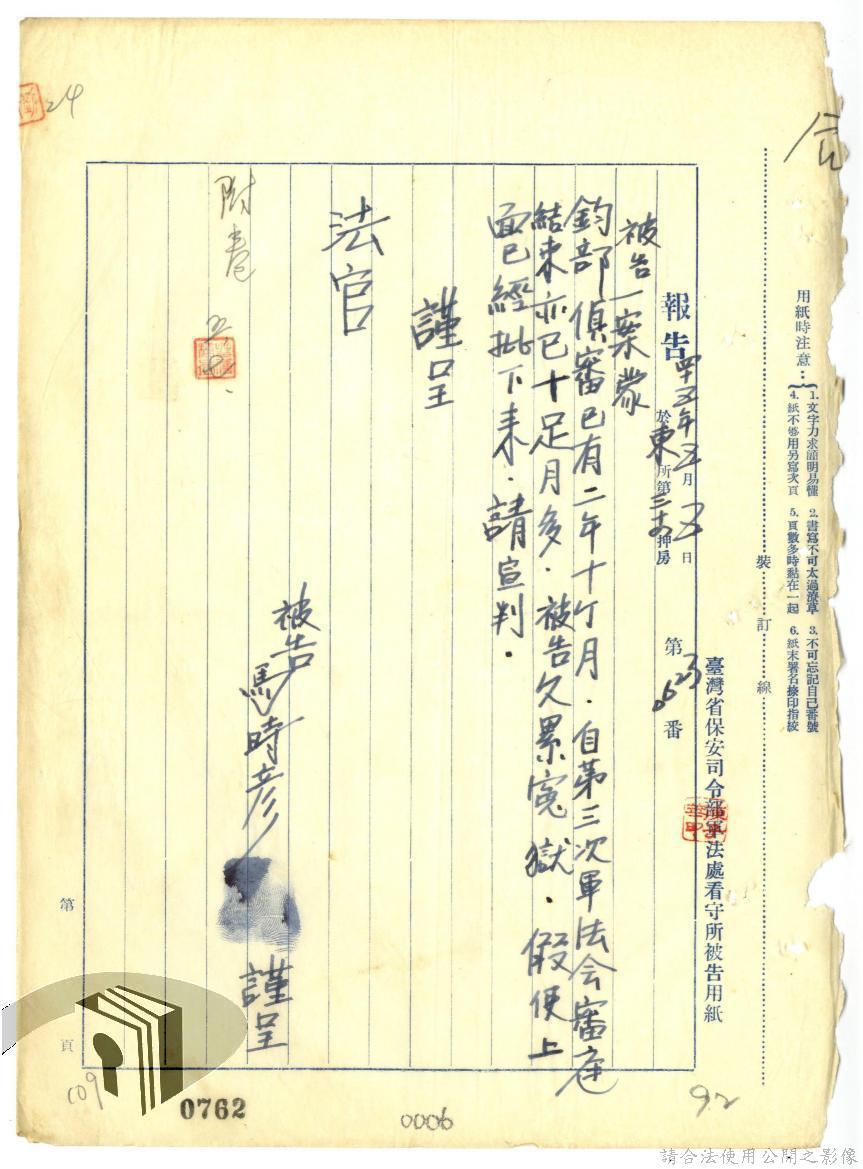 用紙時注意：
1. 文字力求語明易懂
2. 書寫不可太過潦草
3. 不可忘記自己番號
4. 紙不夠用另寫次頁
5. 頁數多時黏在一起
6. 紙末署名捺印指紋
裝訂線
臺灣省保安司令部軍法處看守所被告用紙
報告 四五年五月五日
於東所第三十押房
第0623番
被告一案蒙
鈞部偵審已有二年十个月．自第三次軍法会審庭
結束亦已十足月多．被告久累寃獄．假使上
面已經批下来．請宣判．
謹呈
法官
被告 馬時彥 謹呈
附卷
第 頁
24
109
0762
0006
92
請合法使用公開之影像